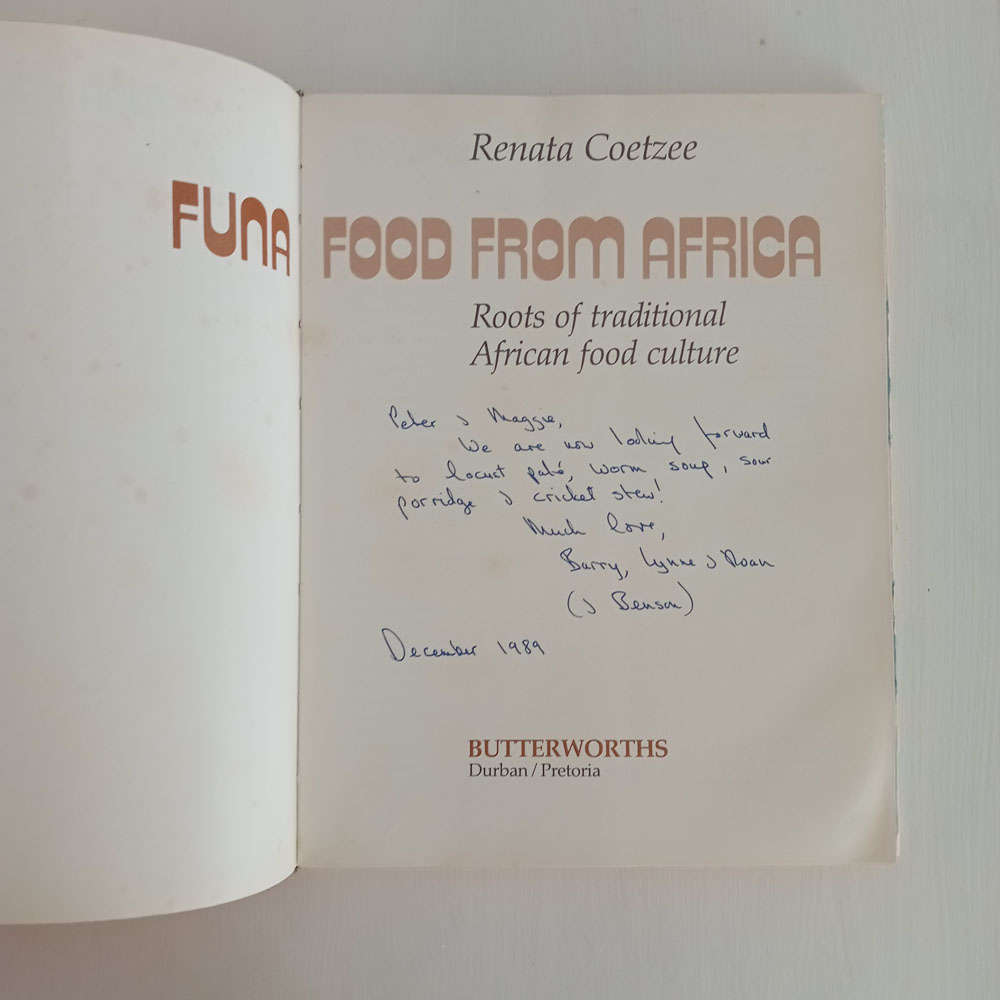 Renata Coetzee
FUNA FOOD FROM AFRICA
Roots of traditional
African food culture
Peter & Maggie,
We are now looking forward
to locust paté, worm soup, sour
porridge & cricket stew!
Much love,
Barry, Lynne & Roan
(& Benson)
December 1989
BUTTERWORTHS
Durban / Pretoria